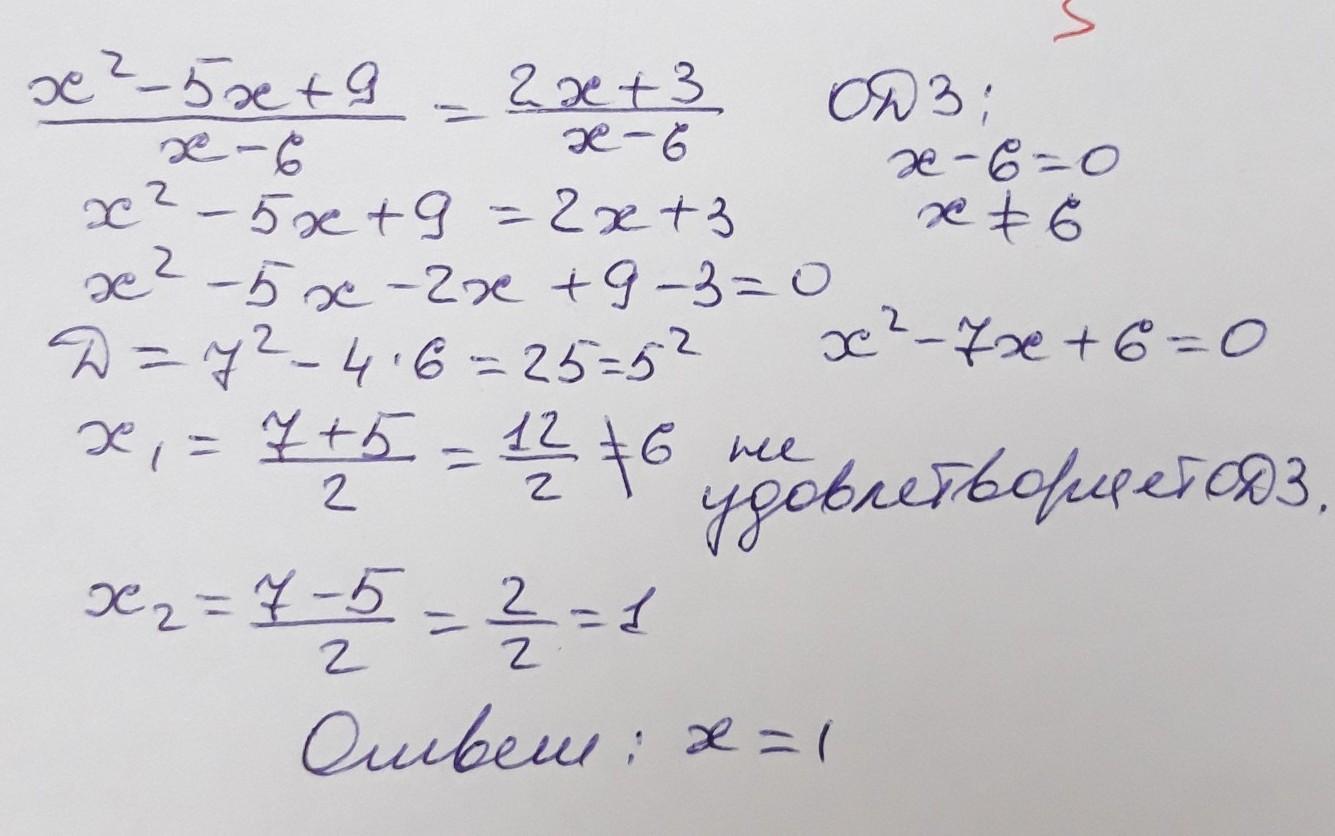 x² - 5x + 9 / x - 6 = 2x + 3 / x - 6
ОДЗ:
x - 6 = 0
x ≠ 6
x² - 5x + 9 = 2x + 3
x² - 5x - 2x + 9 - 3 = 0
x² - 7x + 6 = 0
Д = 7² - 4 · 6 = 25 = 5²
x₁ = 7 + 5 / 2 = 12 / 2 ≠ 6 не
удовлетворяет ОДЗ.
x₂ = 7 - 5 / 2 = 2 / 2 = 1
Ответ: x = 1